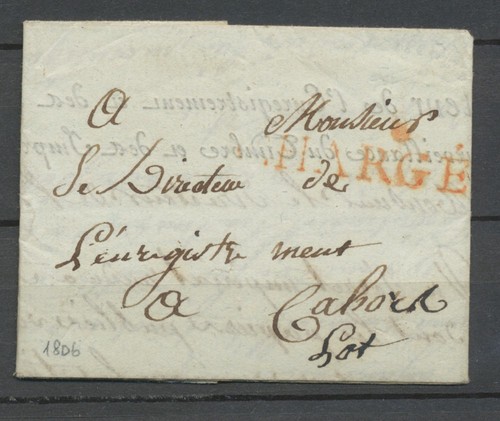 A Monsieur
CHARGÉ
Le Directeur de
L'énregistrement
a Cahors
Lot
1806